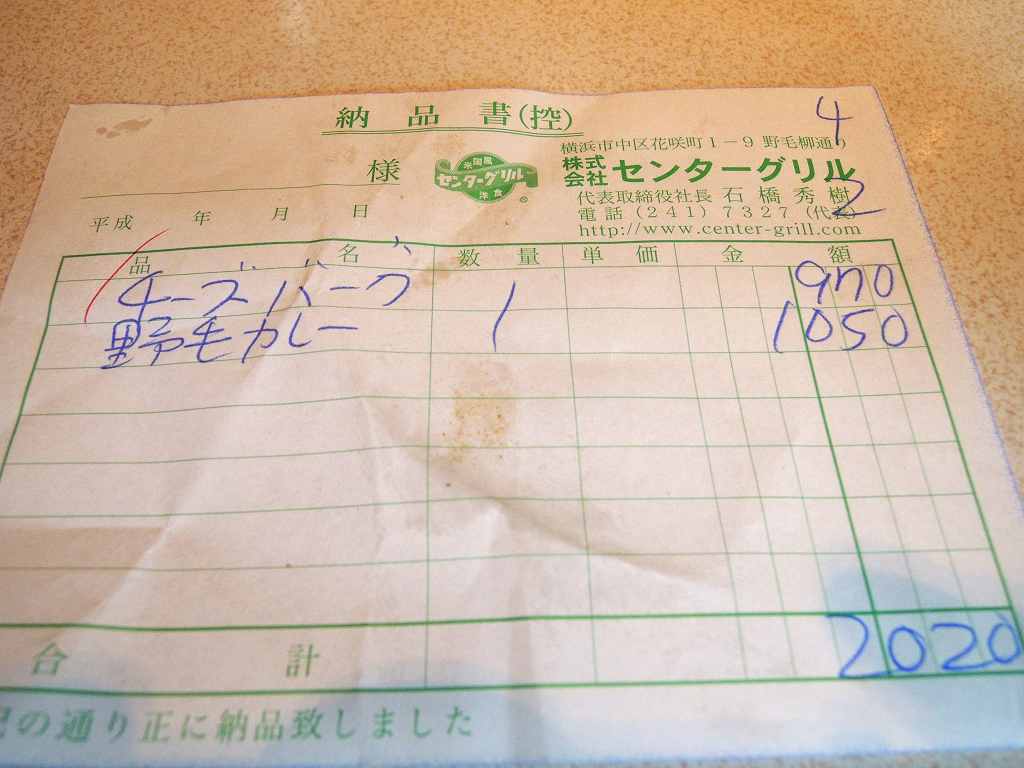 納品書(控)
4
横浜市中区花咲町1-9 野毛柳通り
様
米国風
センターグリル
洋食
株式会社 センターグリル
2
代表取締役社長 石橋秀樹
平成 年 月 日
電話(241)7327(代表)
http://www.center-grill.com
品名 数量 単価 金額
チーズバーグ 970
野毛カレー 1 1050
合計 2020
の通り正に納品致しました